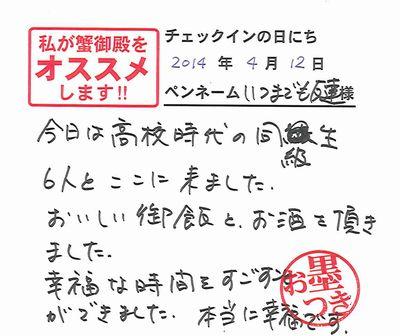 私が蟹御殿を
オススメ
します!!
チェックインの日にち
2014 年 4 月 12 日
ペンネーム いつまでも友達 様
今日は高校時代の同級生
6人とここに来ました.
おいしい御飯と、お酒を頂き
ました.
幸福な時間をすごす事
ができました. 本当に幸福です.
墨
おつき